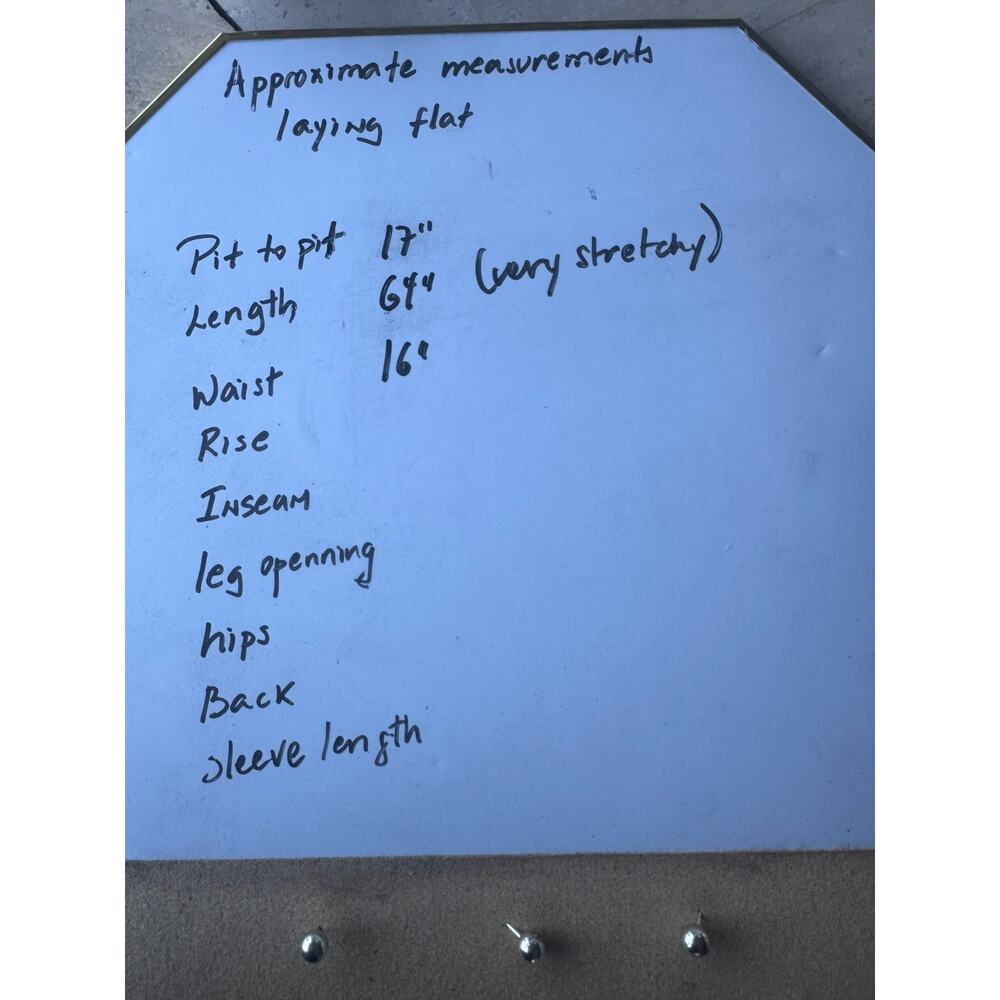 Approximate measurements
laying flat
Pit to pit 17"
Length 64" (very stretchy)
Waist 16"
Rise
Inseam
leg openning
hips
Back
sleeve length